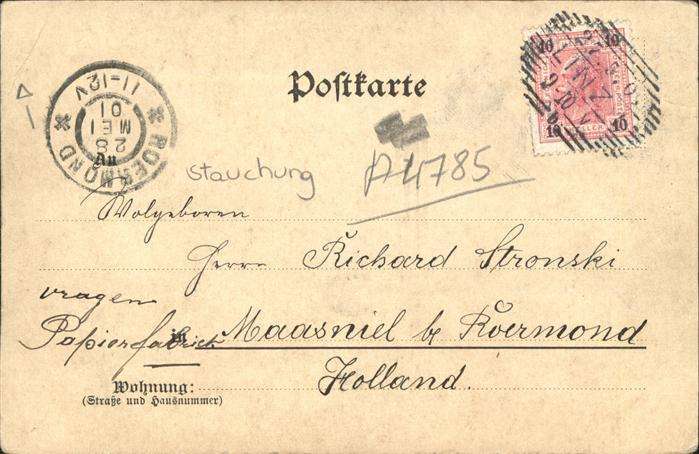 Postkarte
ROERMOND
28
MEI
01
11-12V
LINZ
10 10
10 10
An
stauchung
P4785
Wolgeboren
Herrn Richard Stronski
vragen
Papierfabriek in Maasniel b/ Roermond
Holland.
Wohnung:
(Straße und Hausnummer)